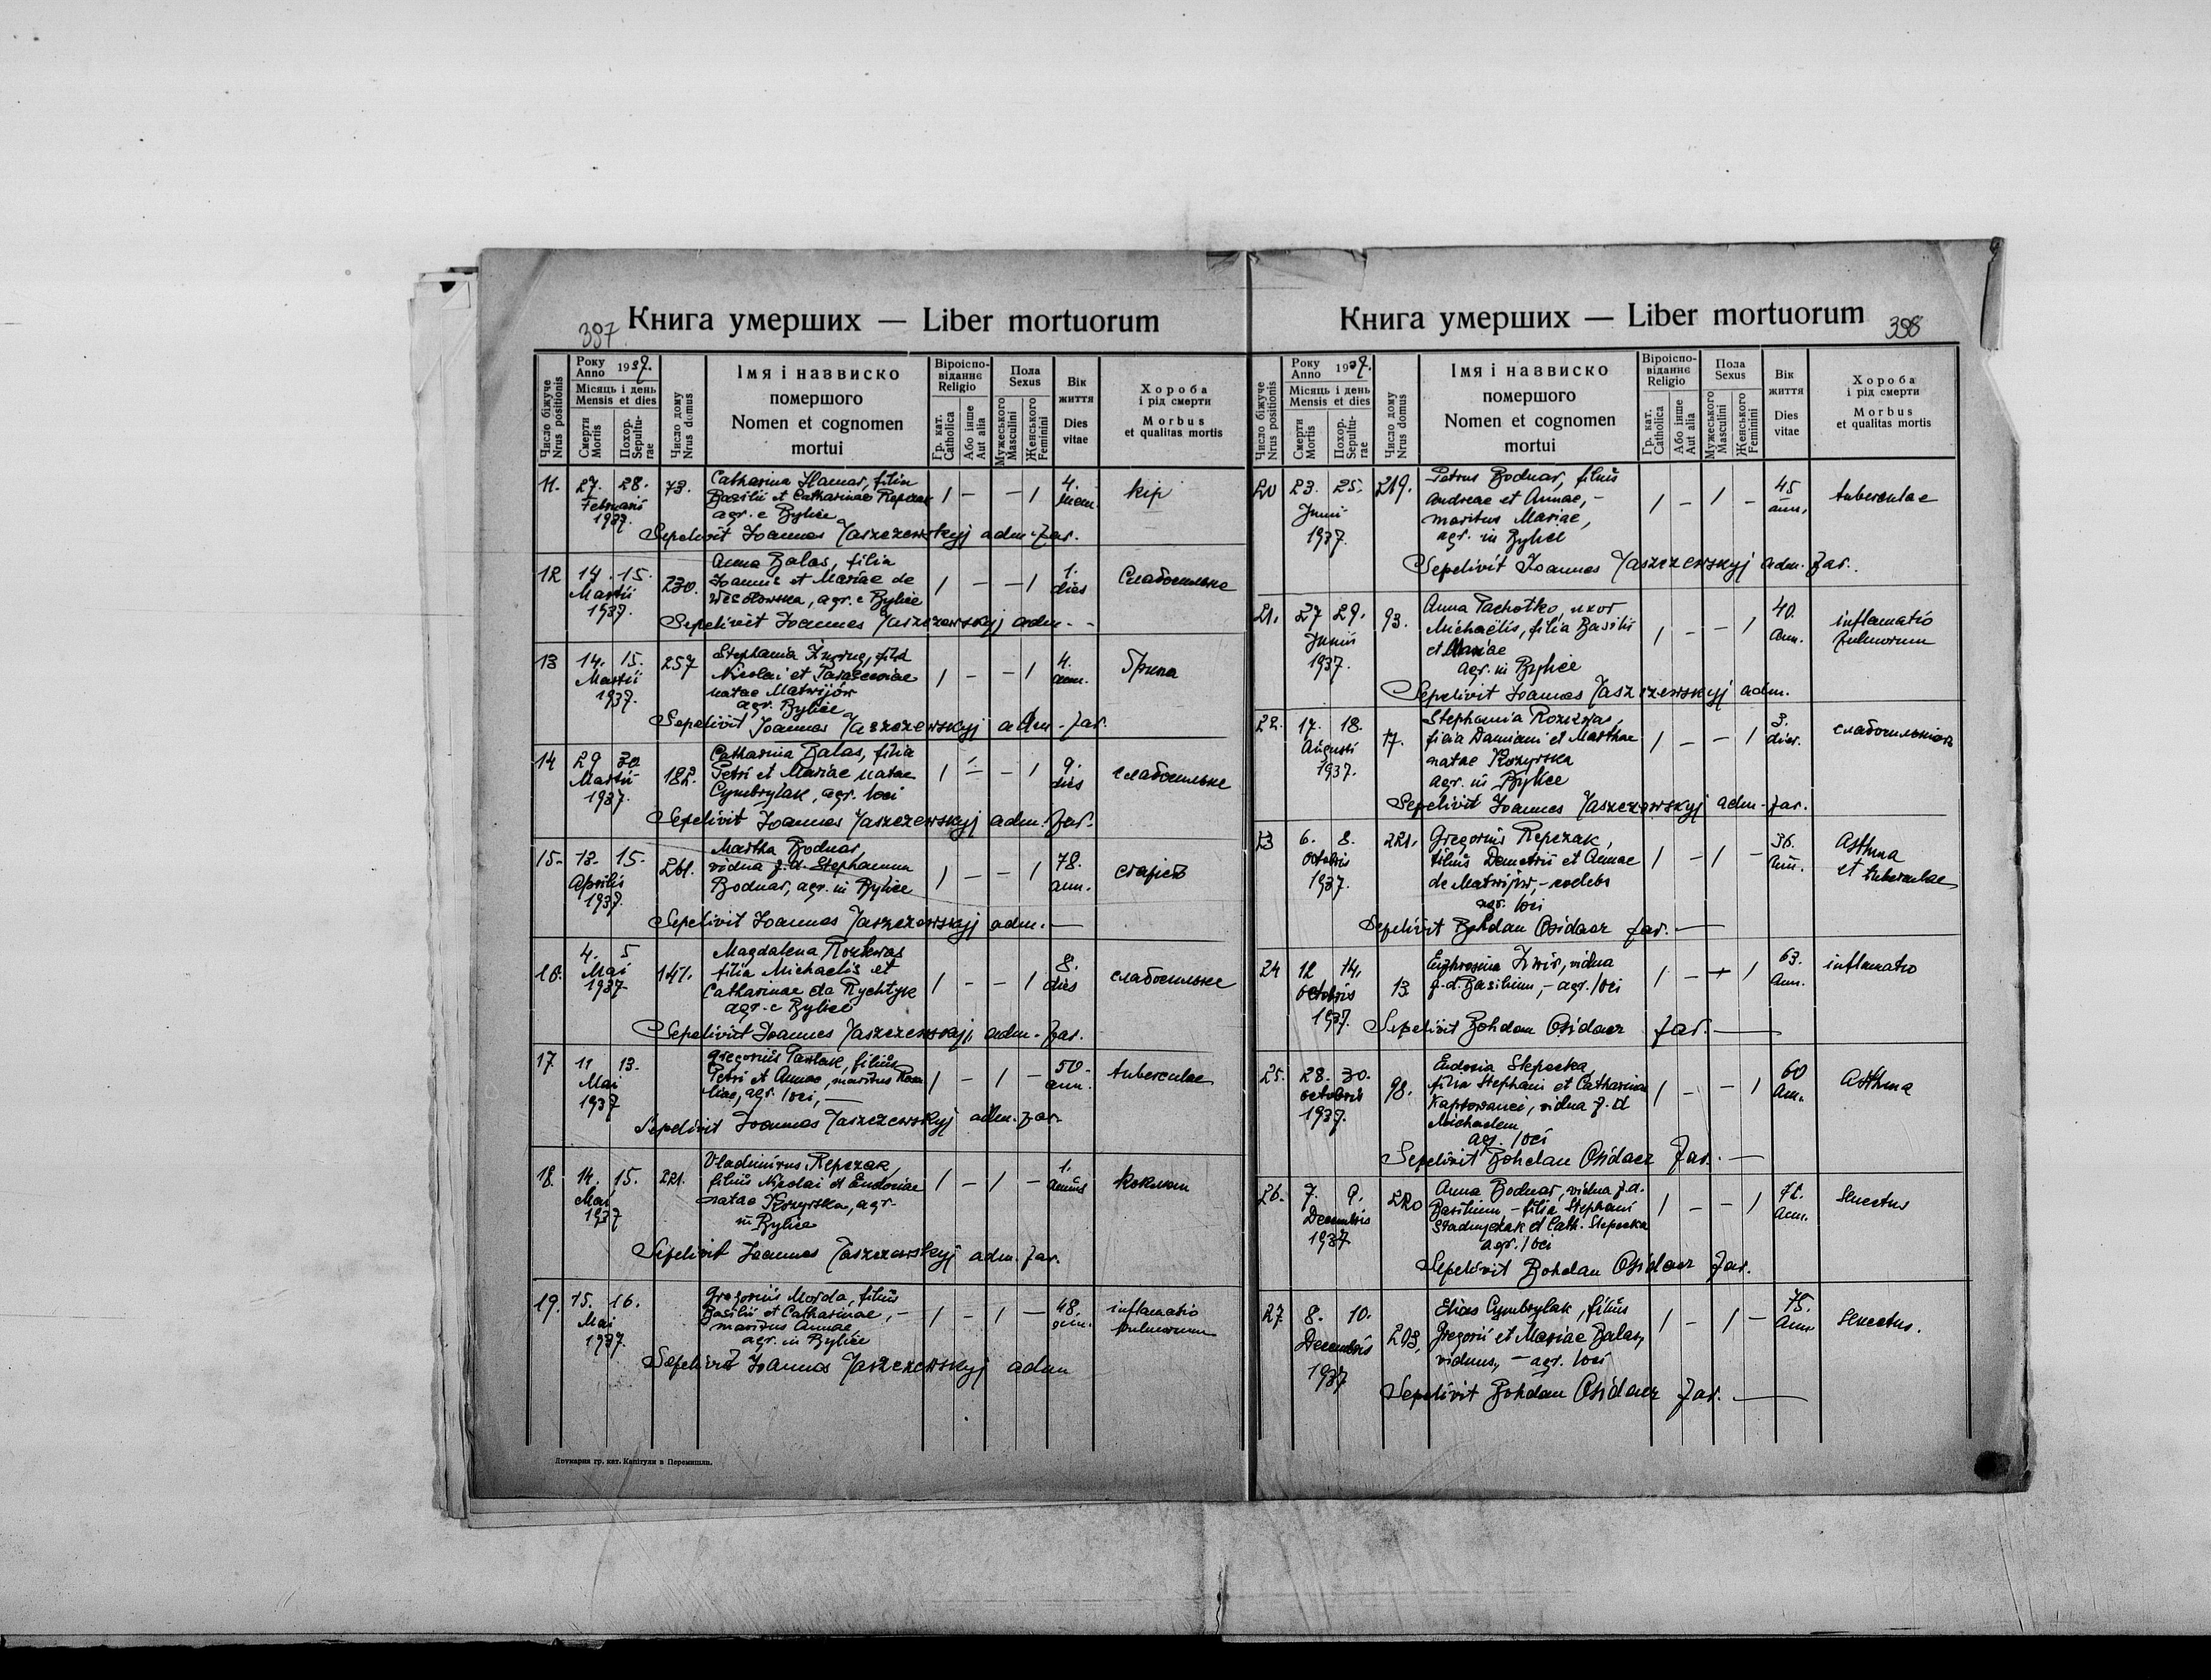 397
Книга умерших — Liber mortuorum
Число біжуче
Nrus positionis
Року
Anno 1937.
Місяць і день
Mensis et dies
Смерти
Mortis
Похор.
Sepultu-
rae
Число дому
Nrus domus
Імя і назвиско
помершого
Nomen et cognomen
mortui
Віроіспо-
віданнє
Religio
Гр. кат.
Catholica
Або інше
Aut alia
Пола
Sexus
Мужеського
Masculini
Женського
Feminini
Вік
життя
Dies
vitae
Хороба
і рід смерти
Morbus
et qualitas mortis
11. 27. 28. Februarii 1937. 73.
Catharina Hamar, filia
Basilii et Catharinae Repczak
agr. e Bylice
/ - - / 4. mens. кір
Sepelivit Joannes Jaszczewskyj adm. par.
12 14. 15. Martii 1937. 230.
Anna Balas, filia
Joannis et Mariae de
Wesołowska, agr. e Bylice
/ - - / 1. dies Слабосильне
Sepelivit Joannes Jaszczewskyj adm. -
13 14. 15. Martii 1937. 257
Stephania, filia
Nicolai et Parasceviae
natae Matwijów
agr. Bylice
/ - - / 4. ann. Грипа
Sepelivit Joannes Jaszczewskyj adm. par.
14 29 30 Martii 1937. 182.
Catharina Balas, filia
Petri et Mariae natae
Cymbrylak, agr. loci
/ - - / 9. dies слабосильне
Sepelivit Joannes Jaszczewskyj adm. par.
15. 13. 15. Aprilis 1937. 261.
Martha Bodnar,
vidua p. d. Stephanum
Bodnar, agr. in Bylice
/ - - / 78. ann. старість
Sepelivit Joannes Jaszczewskyj adm. —
16. 4. 5 Mai 1937 147.
Magdalena Rozkwas
filia Michaelis et
Catharinae de Rychtyk
agr. e Bylice
/ - - / 8. dies слабосильне
Sepelivit Joannes Jaszczewskyj, adm. par.
17 11 13. Mai 1937
Gregorius Pawlak, filius
Petri et Annae, maritus Rosa
liae, agr. loci, —
/ - / - 50. ann. tuberculae
Sepelivit Joannes Jaszczewskyj adm. par.
18. 14. 15. Mai 1937 221.
Vladimirus Repczak,
filius Nicolai et Eudoxiae
natae Kozyrska, agr.
in Bylice
/ - / - 1. annus коклюш
Sepelivit Joannes Jaszczewskyj adm. par.
19. 15. 16. Mai 1937.
Gregorius Morda, filius
Basilii et Catharinae, -
maritus Annae
agr. in Bylice
/ - / - 48. ann. inflamatio pulmorum
Sepelivit Joannes Jaszczewskyj adm
Друкарня гр. кат. Капітули в Перемишлі.
398
Книга умерших — Liber mortuorum
Число біжуче
Nrus positionis
Року
Anno 1937.
Місяць і день
Mensis et dies
Смерти
Mortis
Похор.
Sepultu-
rae
Число дому
Nrus domus
Імя і назвиско
помершого
Nomen et cognomen
mortui
Віроіспо-
віданнє
Religio
Гр. кат.
Catholica
Або інше
Aut alia
Пола
Sexus
Мужеського
Masculini
Женського
Feminini
Вік
життя
Dies
vitae
Хороба
і рід смерти
Morbus
et qualitas mortis
20 23. 25. Junii 1937. 219.
Petrus Bodnar, filius
Andreae et Annae, -
maritus Mariae,
agr. in Bylice
/ - / - 45 ann. tuberculae
Sepelivit Joannes Jaszczewskyj adm. par.
21. 27 29. Junii 1937. 93.
Anna Pachotko, uxor
Michaëlis, filia Basilii
et Mariae
agr. in Bylice
/ - - / 40. ann. inflamatio pulmorum
Sepelivit Joannes Jaszczewskyj adm.
22. 17. 18. Augusti 1937. 17.
Stephania Rozkwas,
filia Damiani et Marthae
natae Kozyrska
agr. in Bylice
/ - - / 3. dies. слабосильність
Sepelivit Joannes Jaszczewskyj adm. par.
23 6. 8. octobris 1937. 221.
Gregorius Repczak,
filius Demetrii et Annae
de Matwijów, - coelebs
agr. loci
/ - / - 36. ann. Asthma et tuberculae
Sepelivit Bohdan Osidacz par. —
24 12 14. octobris 1937. 13
Euphrosina Zwir, vidua
p. d. Basilium, - agr. loci
/ - - / 63. ann. inflamatio
Sepelivit Bohdan Osidacz par. —
25. 28. 30. octobris 1937. 98.
Eudoxia Slepecka,
filia Stephani et Catharina
Kaptowanci, vidua p. d
Michaelem
agr. loci
/ - - / 60 Ann. Asthma
Sepelivit Bohdan Osidacz par. —
26. 7. 9. Decembris 1937 220
Anna Bodnar, vidua p. d.
Basilium - filia Stephani
Stadnyczak et Cath. Slepecka
agr. loci
/ - - / 72. Ann. Senectus
Sepelivit Bohdan Osidacz par.
27 8. 10. Decembris 1937 203.
Elias Cymbrylak, filius
Gregorii et Mariae Balas,
viduus, - agr. loci
/ - / - 75. Ann. Senectus.
Sepelivit Bohdan Osidacz par. —